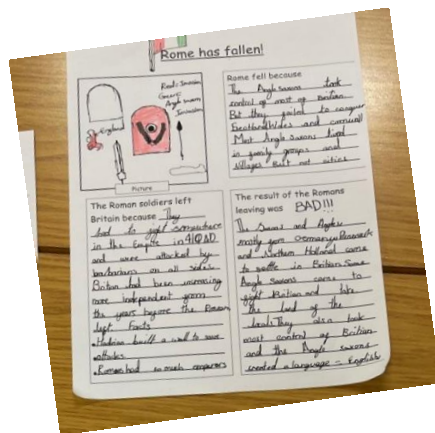 Rome has fallen!
Red: Saxon
England
Angle Saxons
Invasion
Picture
Rome fell because
The Anglo saxons took
control of most of Britain.
But they failed to conquer
Scotland Wales and cornwall
Most Anglo saxons lived
in family groups and
villages but not cities
The Roman soldiers left
Britain because They
had to fight somewhere
in the Empire in 410 AD
and were attacked by
barbarians on all sides.
Britain had been increasing
more independent from
the years before the Romans
left Facts
•Hadrian built a wall to save
attacks
•Romans had so much
The result of the Romans
leaving was BAD!!!
The Saxons and Angles
mostly from Germany Denmark
and Northern Holland came
to settle in Britain Some
Angle saxons came to
fight Britain and take
the land of the
locals. They also took
most control of Britain
and the Angle saxons
created a language = English